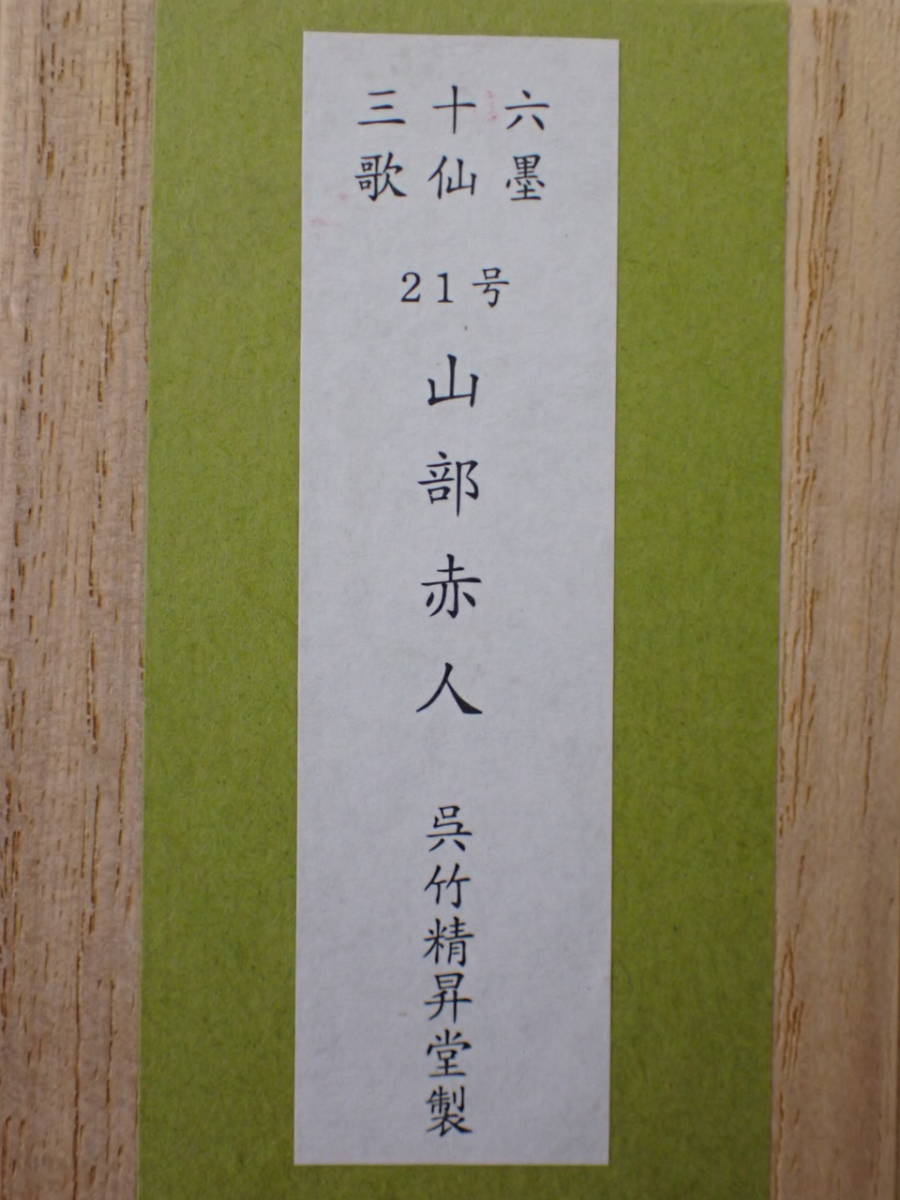 三十六
歌仙墨
21号
山部赤人
呉竹精昇堂製